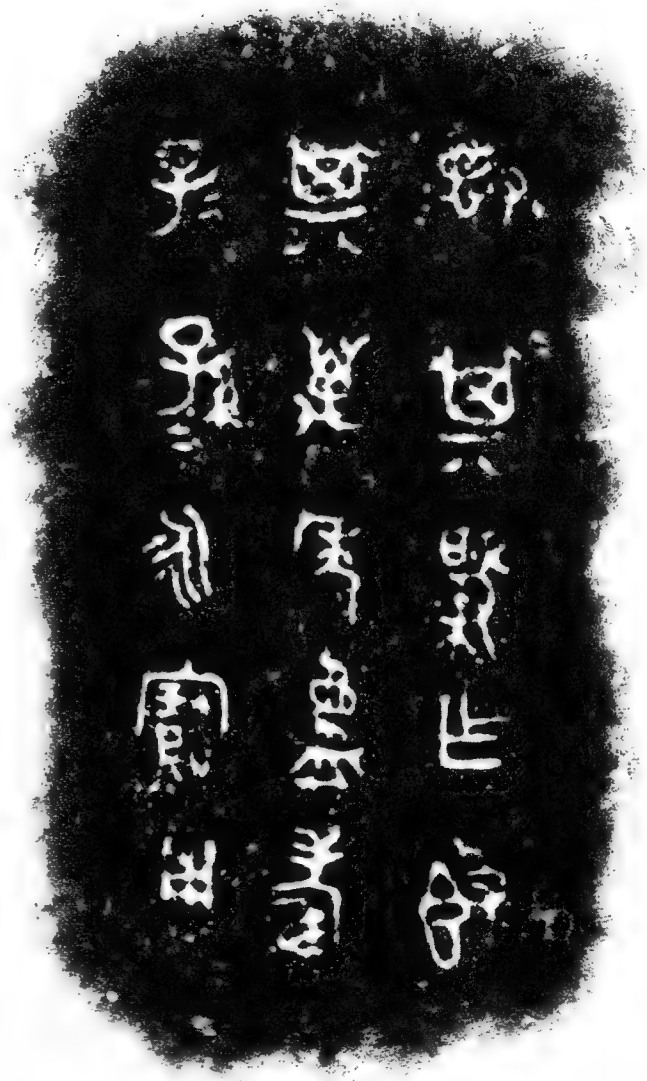 其肇乍𣪘
其萬年眉壽
子孫永寶用